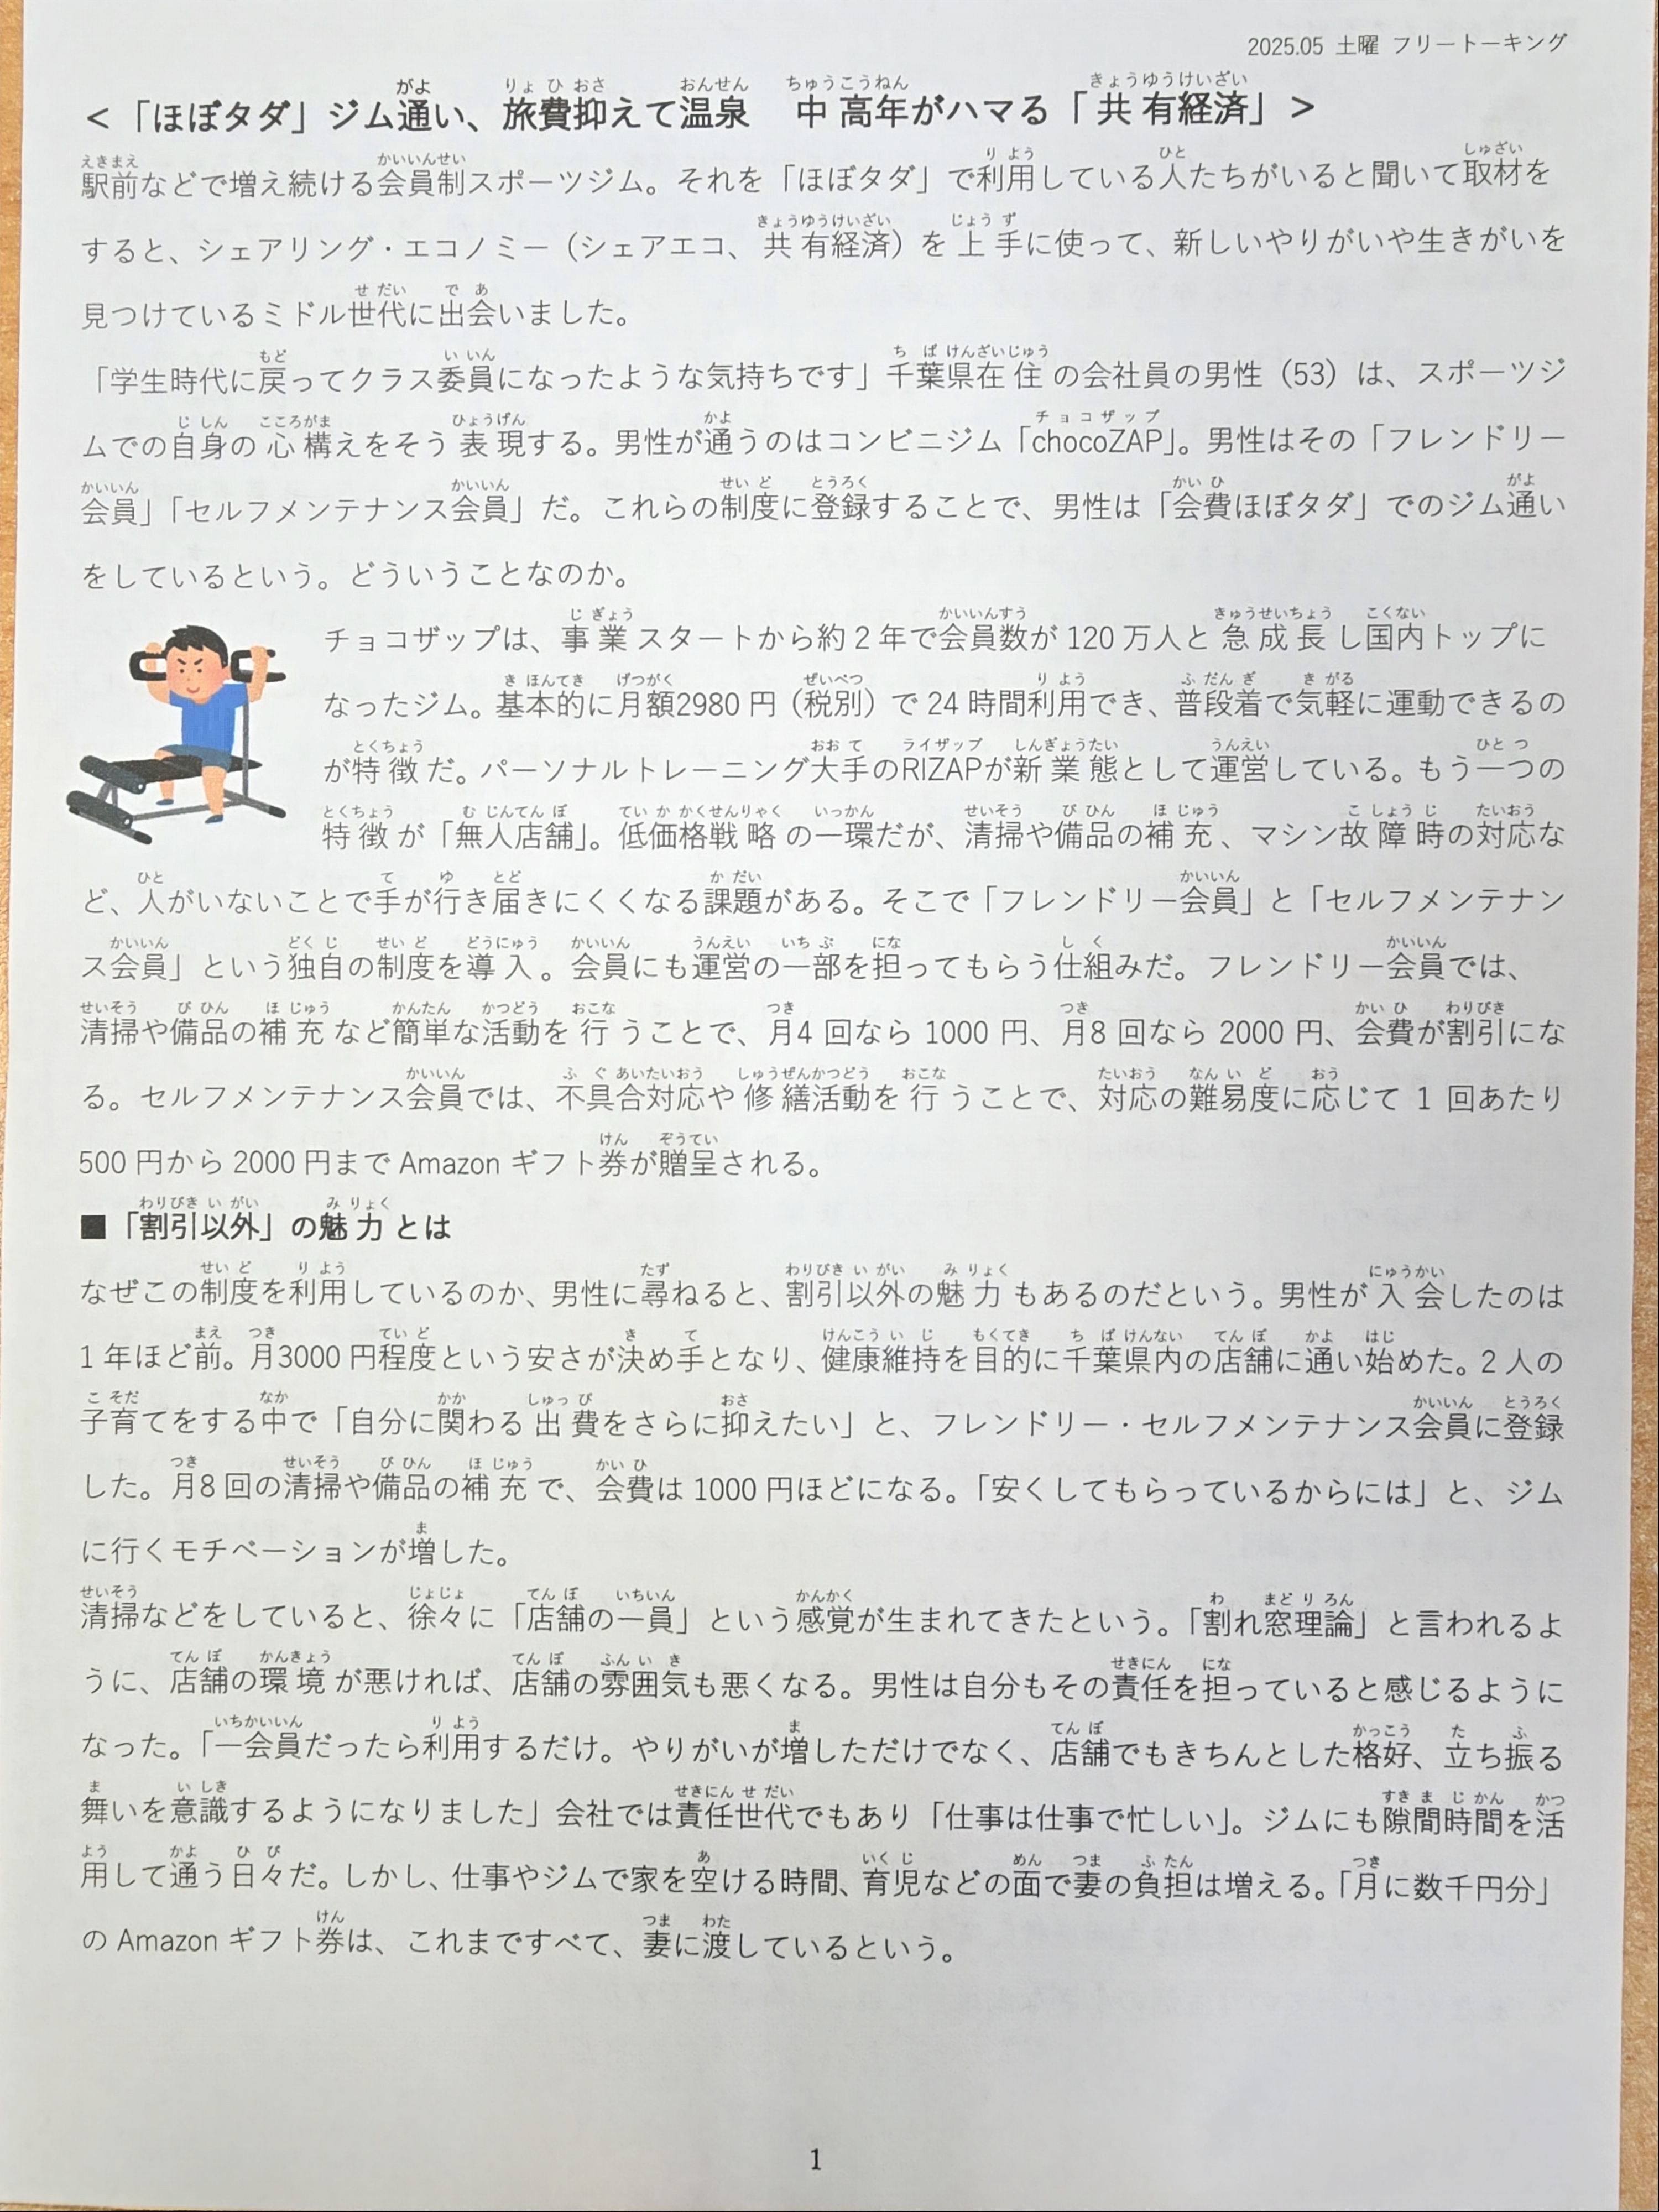 2025.05 土曜 フリートーキング
＜「ほぼタダ」ジム通い、旅費抑えて温泉　中高年がハマる「共有経済」＞
駅前などで増え続ける会員制スポーツジム。それを「ほぼタダ」で利用している人たちがいると聞いて取材を
すると、シェアリング・エコノミー（シェアエコ、共有経済）を上手に使って、新しいやりがいや生きがいを
見つけているミドル世代に出会いました。
「学生時代に戻ってクラス委員になったような気持ちです」千葉県在住の会社員の男性（53）は、スポーツジ
ムでの自身の心構えをそう表現する。男性が通うのはコンビニジム「chocoZAP」。男性はその「フレンドリー
会員」「セルフメンテナンス会員」だ。これらの制度に登録することで、男性は「会費ほぼタダ」でのジム通い
をしているという。どういうことなのか。
チョコザップは、事業スタートから約2年で会員数が120万人と急成長し国内トップに
なったジム。基本的に月額2980円（税別）で24時間利用でき、普段着で気軽に運動できるの
が特徴だ。パーソナルトレーニング大手のRIZAPが新業態として運営している。もう一つの
特徴が「無人店舗」。低価格戦略の一環だが、清掃や備品の補充、マシン故障時の対応な
ど、人がいないことで手が行き届きにくくなる課題がある。そこで「フレンドリー会員」と「セルフメンテナン
ス会員」という独自の制度を導入。会員にも運営の一部を担ってもらう仕組みだ。フレンドリー会員では、
清掃や備品の補充など簡単な活動を行うことで、月4回なら1000円、月8回なら2000円、会費が割引にな
る。セルフメンテナンス会員では、不具合対応や修繕活動を行うことで、対応の難易度に応じて1回あたり
500円から2000円までAmazonギフト券が贈呈される。
■「割引以外」の魅力とは
なぜこの制度を利用しているのか、男性に尋ねると、割引以外の魅力もあるのだという。男性が入会したのは
1年ほど前。月3000円程度という安さが決め手となり、健康維持を目的に千葉県内の店舗に通い始めた。2人の
子育てをする中で「自分に関わる出費をさらに抑えたい」と、フレンドリー・セルフメンテナンス会員に登録
した。月8回の清掃や備品の補充で、会費は1000円ほどになる。「安くしてもらっているからには」と、ジム
に行くモチベーションが増した。
清掃などをしていると、徐々に「店舗の一員」という感覚が生まれてきたという。「割れ窓理論」と言われるよ
うに、店舗の環境が悪ければ、店舗の雰囲気も悪くなる。男性は自分もその責任を担っていると感じるように
なった。「一会員だったら利用するだけ。やりがいが増しただけでなく、店舗でもきちんとした格好、立ち振る
舞いを意識するようになりました」会社では責任世代でもあり「仕事は仕事で忙しい」。ジムにも隙間時間を活
用して通う日々だ。しかし、仕事やジムで家を空ける時間、育児などの面で妻の負担は増える。「月に数千円分」
のAmazonギフト券は、これまですべて、妻に渡しているという。
1